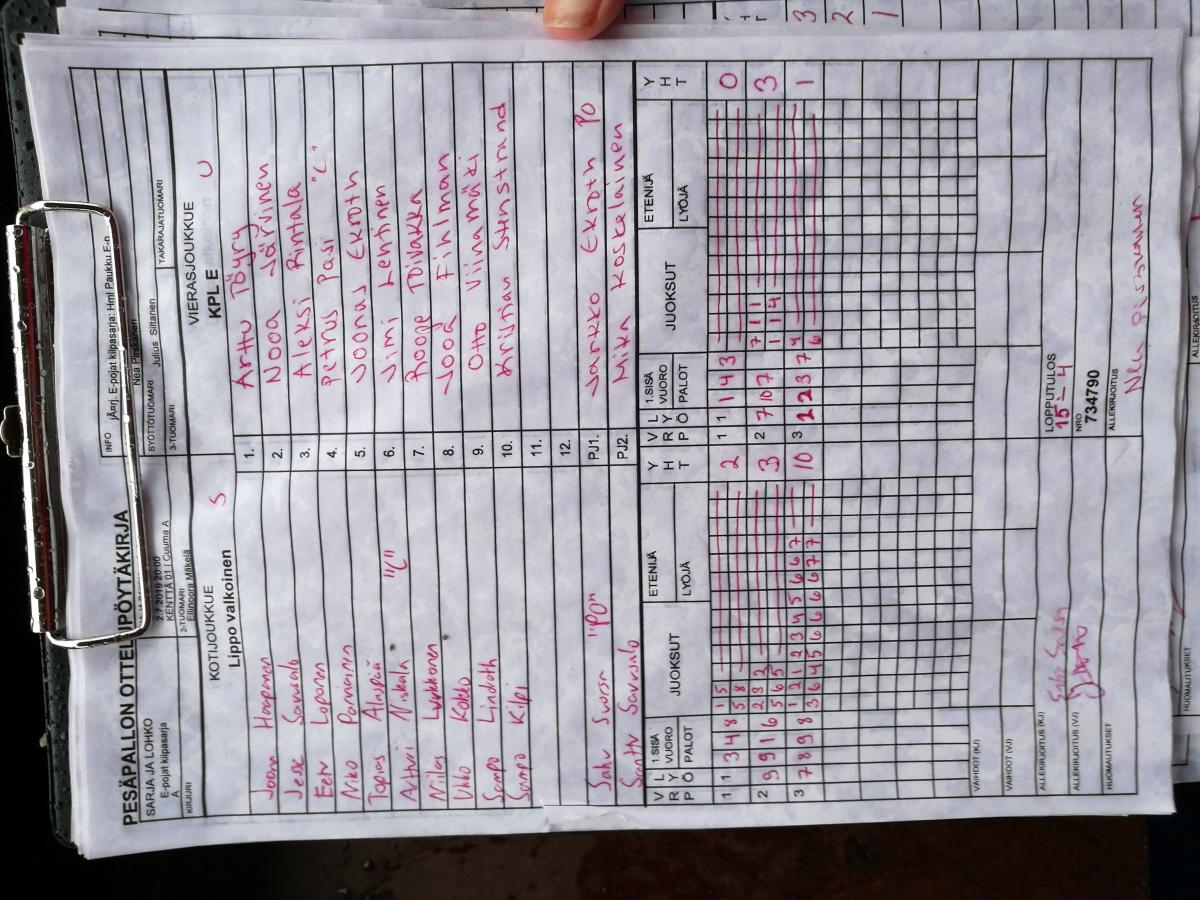 PESÄPALLON OTTELUPÖYTÄKIRJA
SARJA JA LOHKO
E-pojat kilpasarja
A
2.7.2019 20:00
KENTTÄ 01 | Cuuma A
INFO jÄ¤rj. E-pojat kilpasarja: Hml Paukku E-n
Nea Pirskanen
KIRJURI
2-TUOMARI
Ellinoora Mäkelä
SYÖTTÖTUOMARI
Julius Siltanen
3-TUOMARI
TAKARAJATUOMARI
KOTIJOUKKUE S
Lippo valkoinen
VIERASJOUKKUE
KPL E U
Joona Haapanen 1. Arttu Töyry
Jesse Sarusalo 2. Nooa Järvinen
Eetu Loponen 3. Aleksi Rintala
Niko Pannanen 4. Petrus Pasi "C"
Topias Alaspää 5. Joonas Ekroth
Altturi Niskala "C" 6. Jimi Lehtinen
Niilas Luukkonen 7. Roope Toivakka
Ukko Kokko 8. Jood Fihlman
Sampo Lindroth 9. Otto Viinamäki
Sampo Kilpi 10. Kristian Stenstrand
11.
12.
Saku Suorsa "PO" PJ1. Jarkko Ekroth PO
Santtu Sarusalo PJ2. Mika Koskelainen
V R P L Y Ö 1.SISÄ VUORO PALOT JUOKSUT ETENIJÄ LYÖJÄ Y H T V R P L Y Ö 1.SISÄ VUORO PALOT JUOKSUT ETENIJÄ LYÖJÄ Y H T
1 1 3 4 8 1 5 2 1 1 1 4 3 0
5 8
2 9 9 1 6 2 3 2 3 2 7 10 7 7 1 1 3
5 6 5 1 1 4
3 7 8 9 8 1 2 1 2 3 4 5 6 6 7 10 3 2 2 3 7 4 1
3 6 4 5 6 6 6 6 7 7 6
VAIHDOT (KJ)
VAIHDOT (VJ)
LOPPUTULOS
15 - 4
ALLEKIRJOITUS (KJ)
NRO
734790
ALLEKIRJOITUS (VJ)
ALLEKIRJOITUS
Nea Pirskanen
HUOMAUTUKSET
3
2
1
HUOMAUTUKSET
ALLEKIRJOITUS